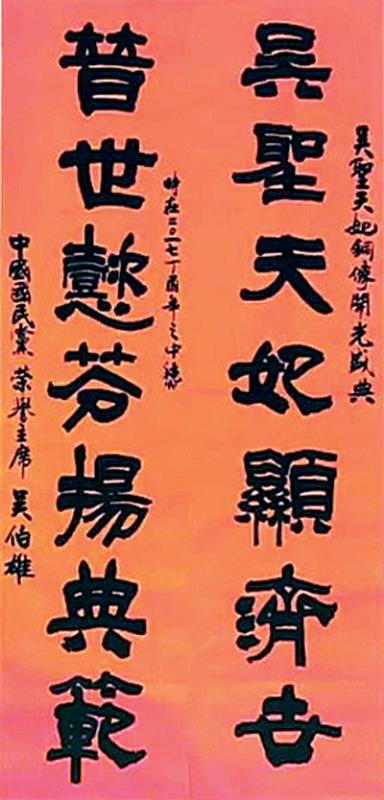 吳聖天妃銅像開光盛典
吳聖天妃顯濟吉
時在二〇一七丁酉年之中
普世懿芬揚典範
中國國民黨 榮譽主席 吳伯雄